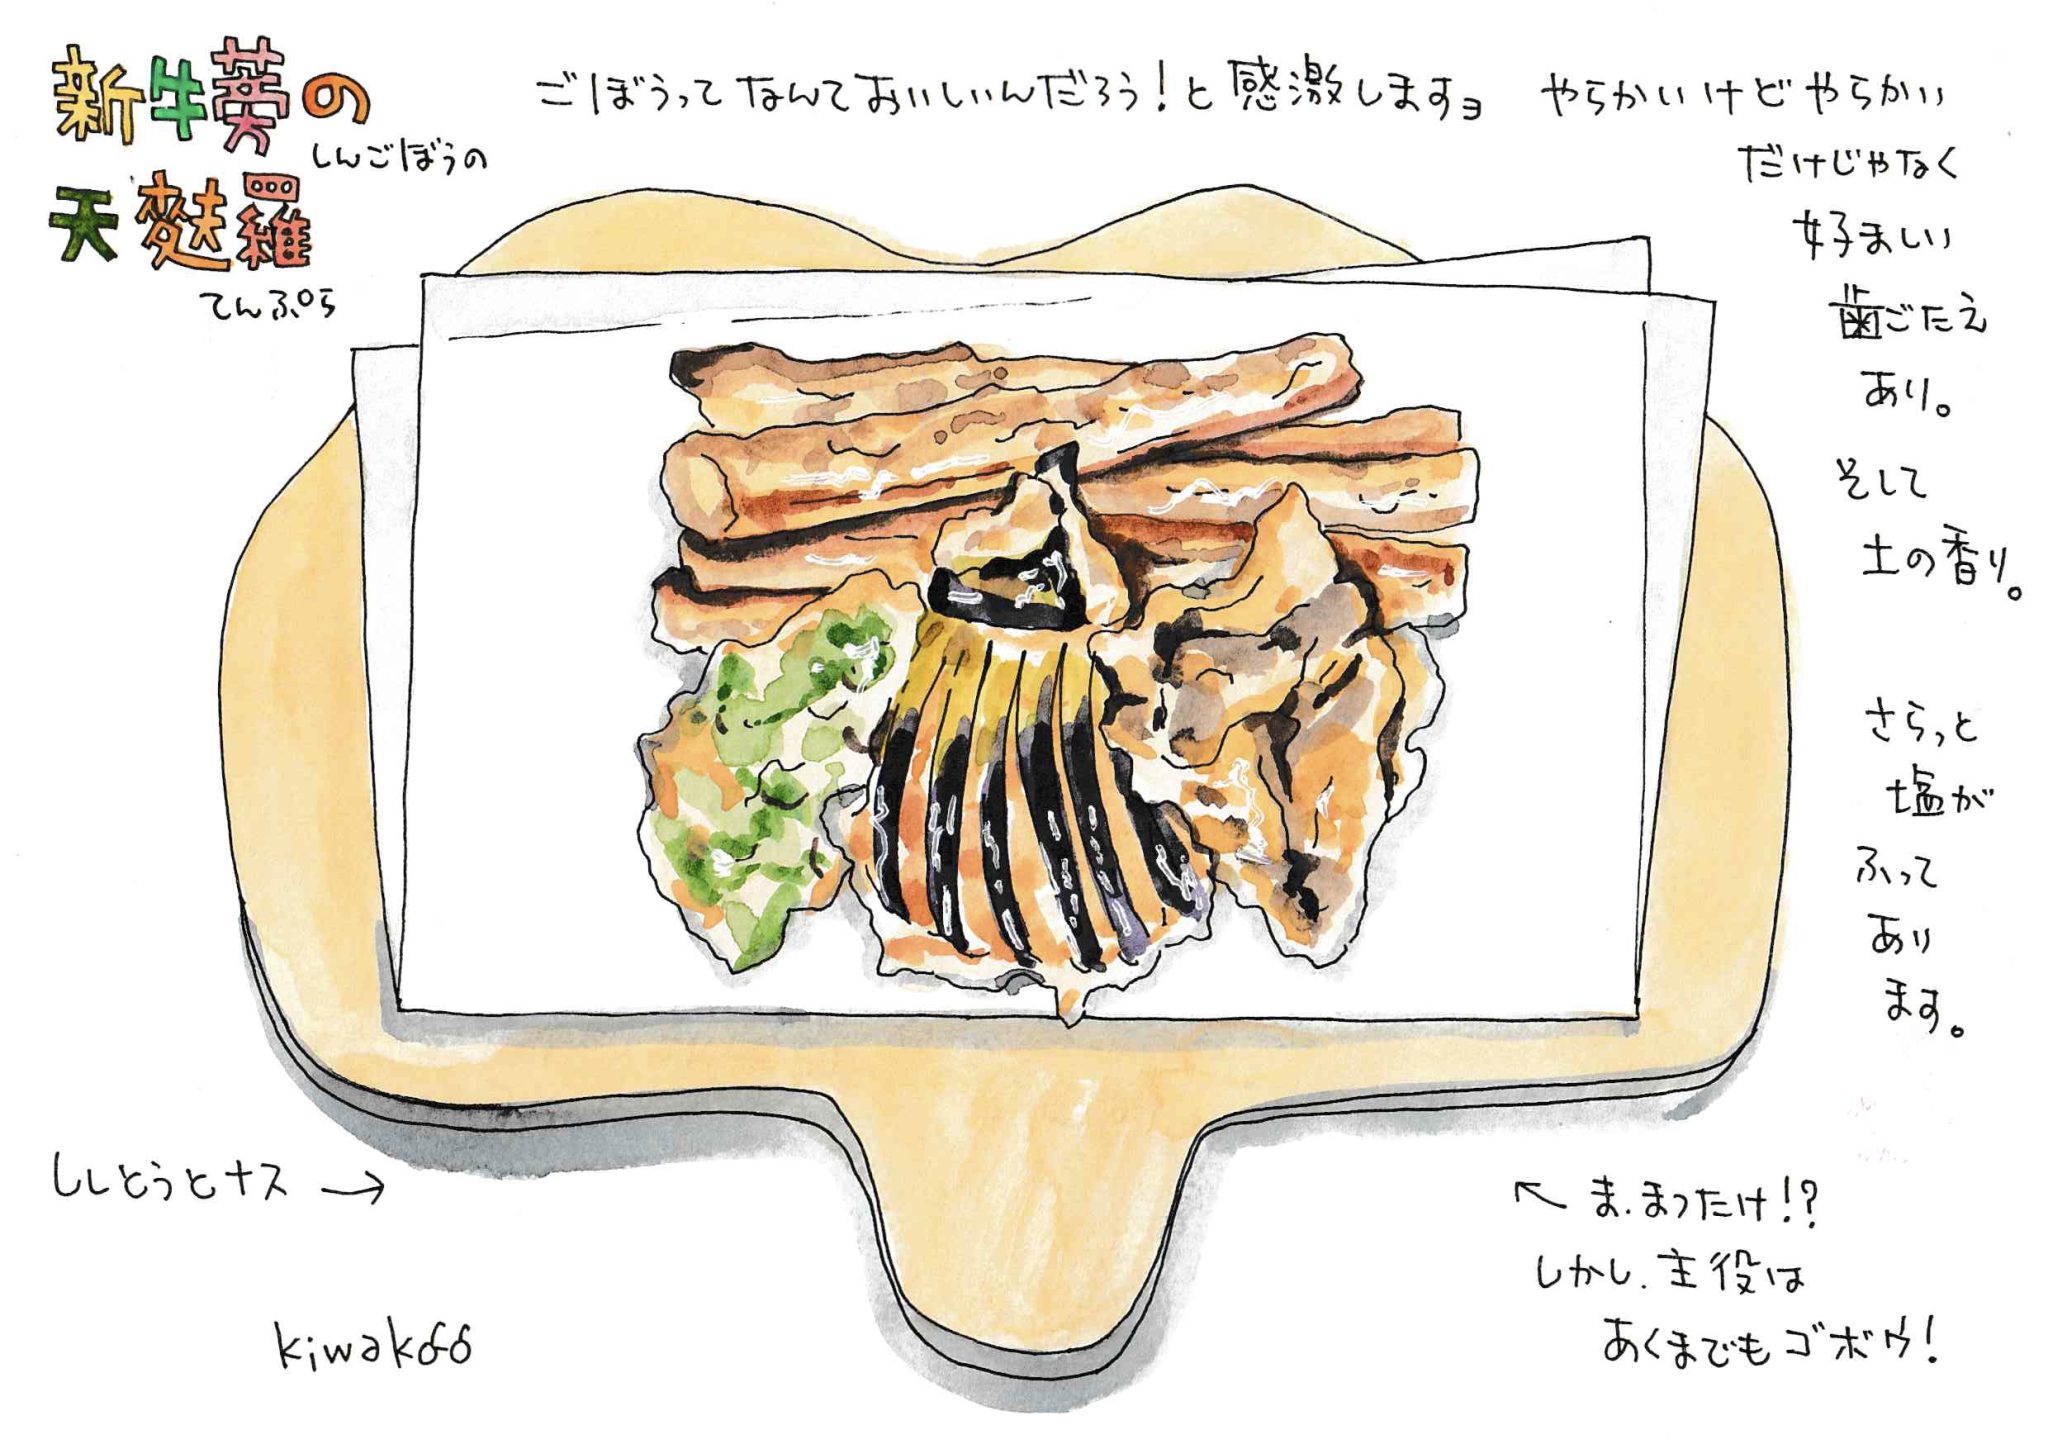 新牛蒡の
しんごぼうの
天麩羅
てんぷら
ごぼうってなんておいしいんだろう!と感激しますョ やらかいけどやらかい
だけじゃなく
好ましい
歯ごたえ
あり。
そして
土の香り。
さらっと
塩が
ふって
あり
ます。
ししとうとナス →
← ま、まつたけ!?
しかし、主役は
あくまでもゴボウ!
kiwakoo